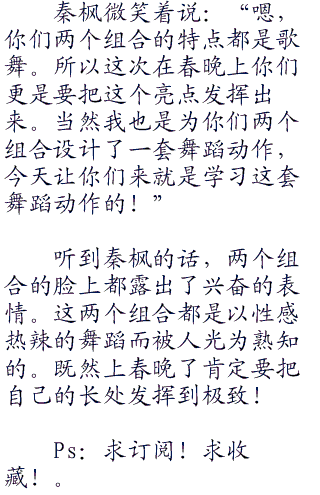 秦枫微笑着说：“嗯，
你们两个组合的特点都是歌
舞。所以这次在春晚上你们
更是要把这个亮点发挥出
来。当然我也是为你们两个
组合设计了一套舞蹈动作，
今天让你们来就是学习这套
舞蹈动作的！”
听到秦枫的话，两个组
合的脸上都露出了兴奋的表
情。这两个组合都是以性感
热辣的舞蹈而被人光为熟知
的。既然上春晚了肯定要把
自己的长处发挥到极致！
Ps：求订阅！求收
藏！。